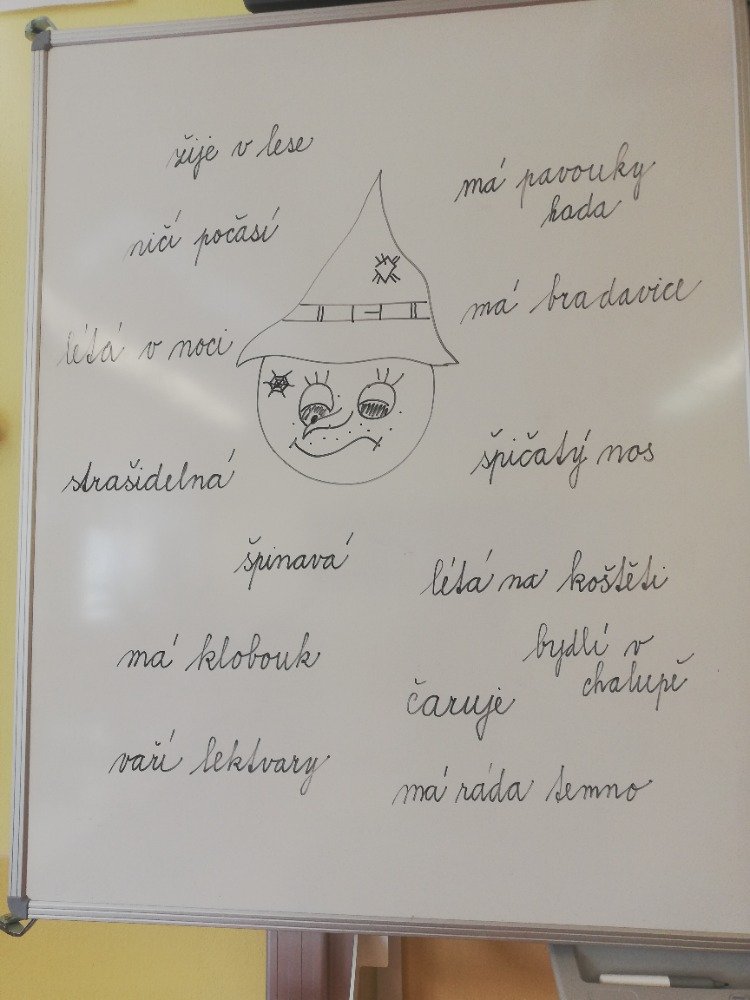 žije v lese
má pavouky
hada
ničí počasí
má bradavice
létá v noci
špičatý nos
strašidelná
špinavá
létá na koštěti
bydlí v
chalupě
má klobouk
čaruje
vaří lektvary
má ráda temno